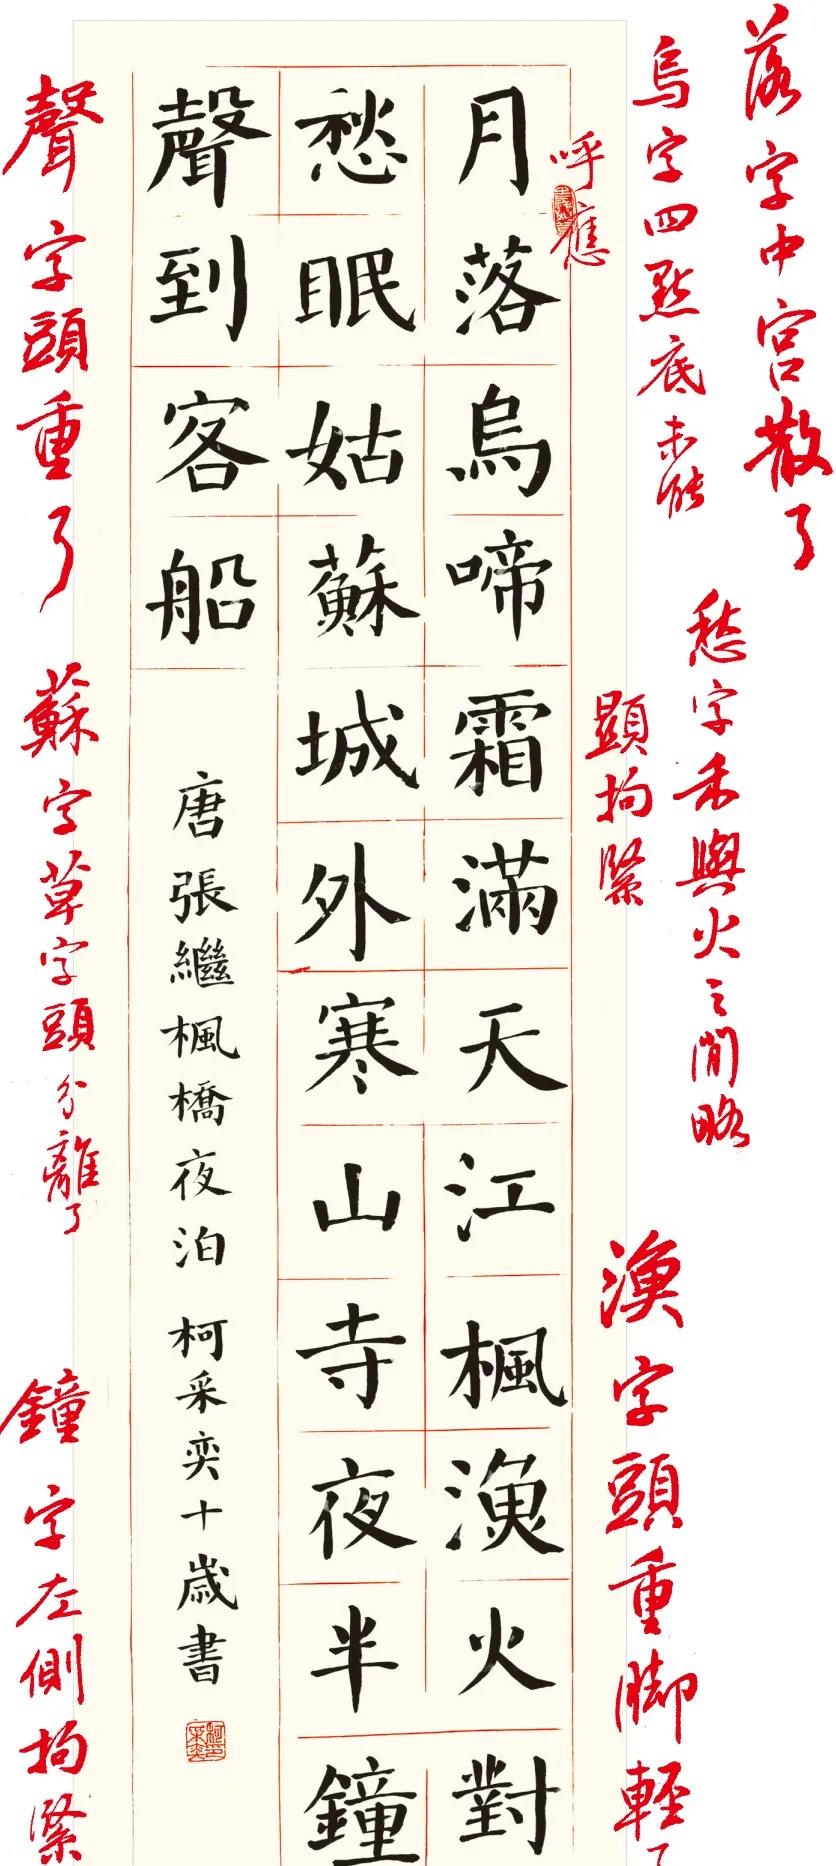 落字中宮散了
烏字四點底未能
呼應
愁字禾與火之間略
顯拘緊
漁字頭重脚輕了
月落烏啼霜滿天江楓漁火對
愁眠姑蘇城外寒山寺夜半鐘
聲到客船
唐張繼楓橋夜泊 柯采奕十歲書
聲字頭重了
蘇字草字頭分離了
鐘字左側拘緊